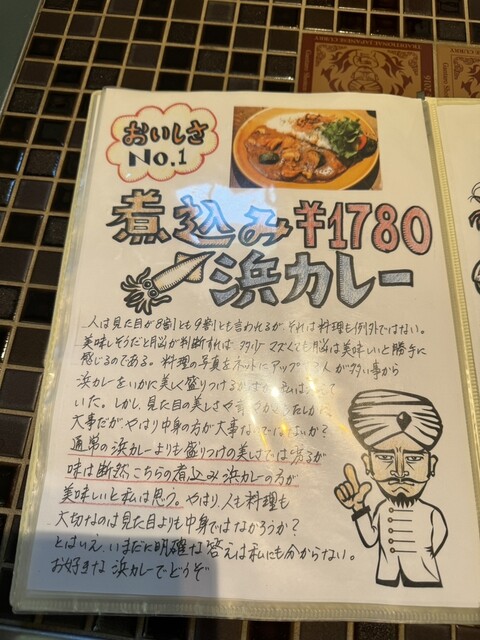 TRADITIONAL JAPANESE CURRY
おいしさ
No.1
煮込み ¥1780
浜カレー
人は見た目が8割とも9割とも言われるが、それは料理も例外ではない。
美味しそうだと脳が判断すれば 多少マズくても脳は美味しいと勝手に
感じるのである。料理の写真をネットにアップ 人が多い事から
浜カレーをいかに美しく盛りつけるか
いた。しかし、見た目の美しさや
大事だが、やはり中身の方が大事なのではないか？
通常の浜カレーよりも盛りつけの美しさでは劣るが
味は断然こちらの煮込み浜カレーの方が
美味しいと私は思う。やはり、人も料理も
大切なのは見た目よりも中身ではなかろうか？
とはいえ、いまだに明確な答えは私にも分からない。
お好きな浜カレーでどうぞ